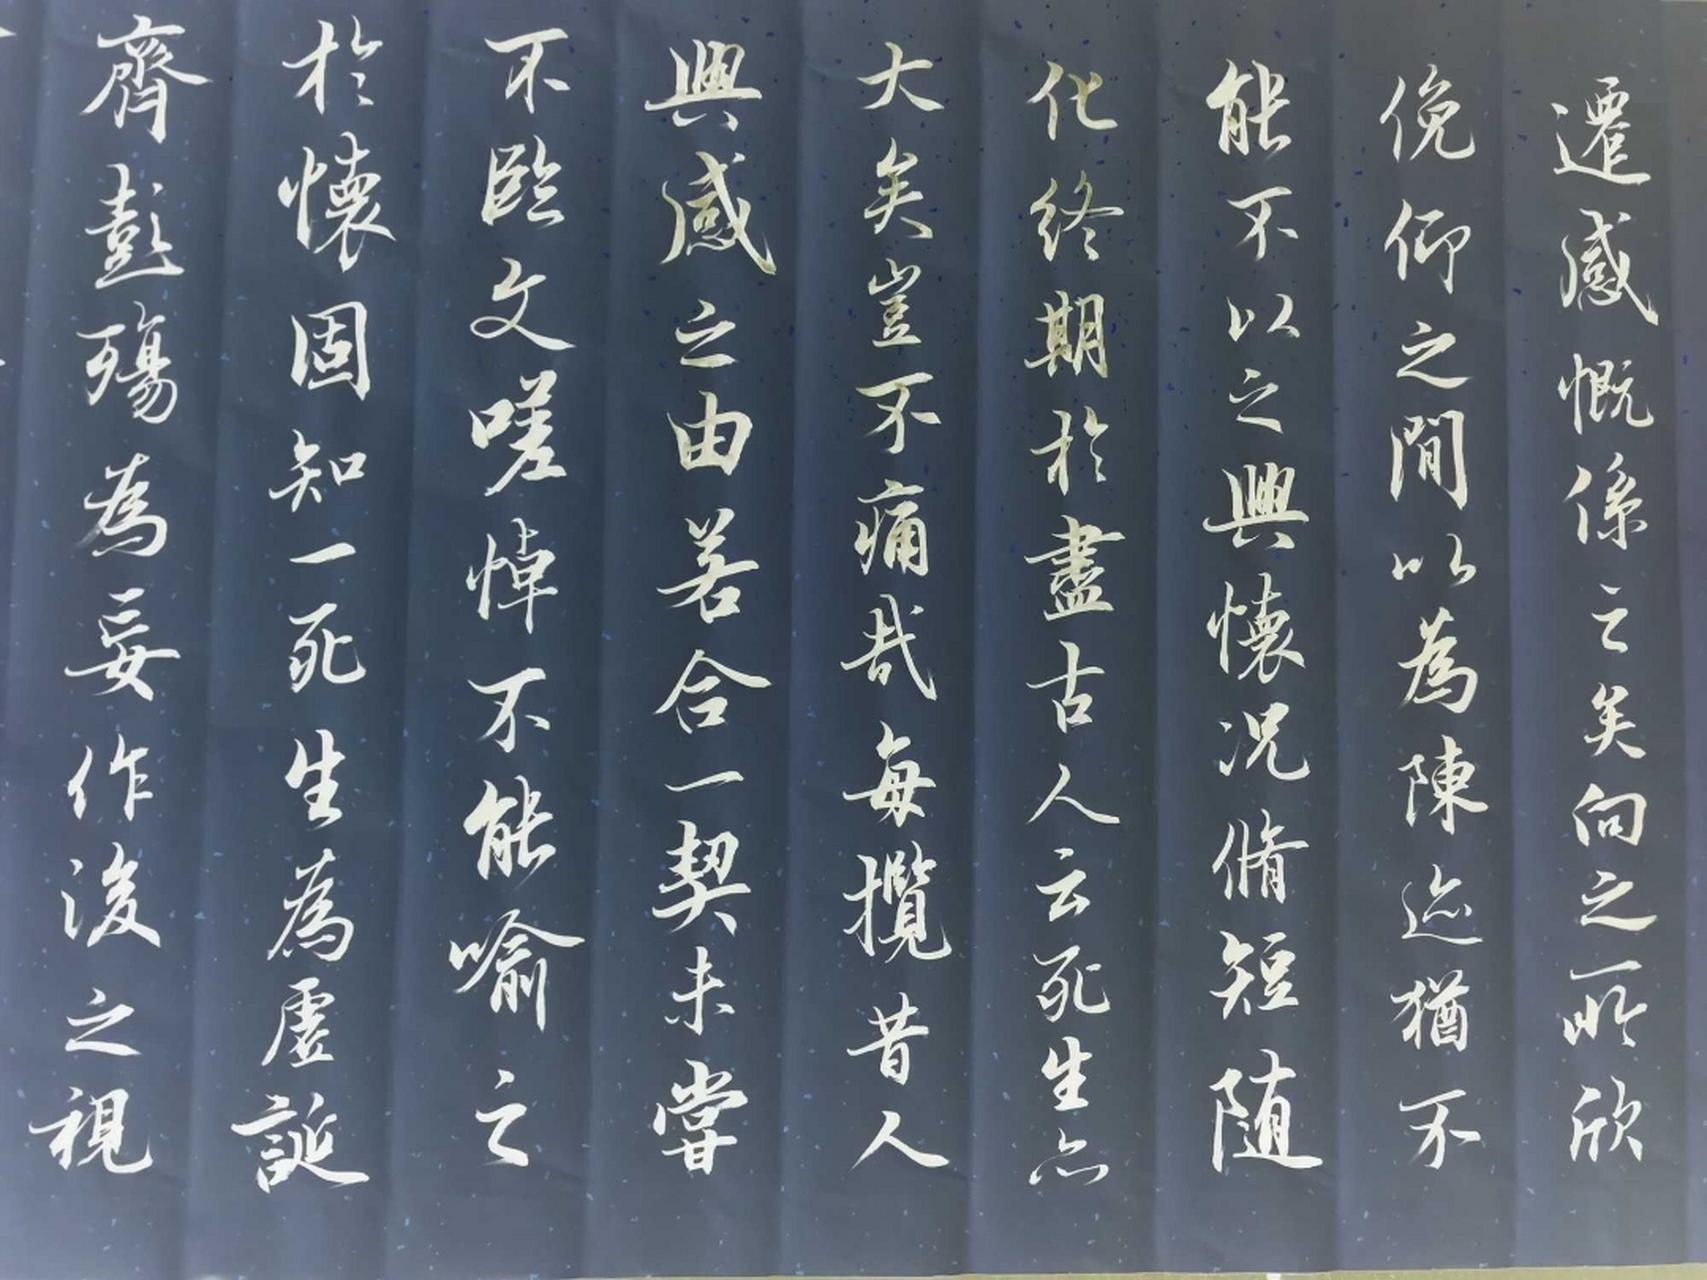 遷感慨係之矣向之所欣
俛仰之間以為陳迹猶不
能不以之興懷況脩短随
化終期於盡古人云死生亦
大矣豈不痛哉每攬昔人
興感之由若合一契未嘗
不臨文嗟悼不能喻之
於懷固知一死生為虛誕
齊彭殤為妄作後之視